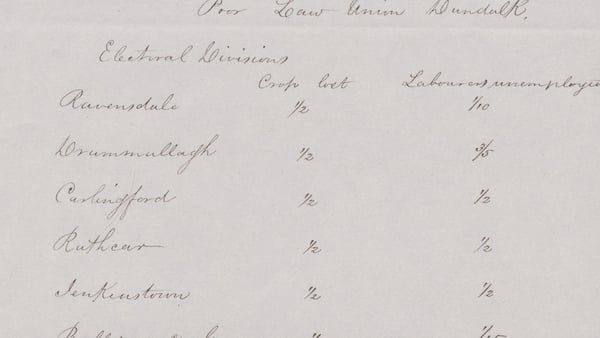 Poor Law Union Dundalk.
Electoral Divisions
Crop lost Labourers unemployed
Ravensdale 1/2 1/10
Drummullagh 1/2 3/5
Carlingford 1/2 1/2
Rathcar 1/2 1/2
Jenkinstown 1/2 1/2